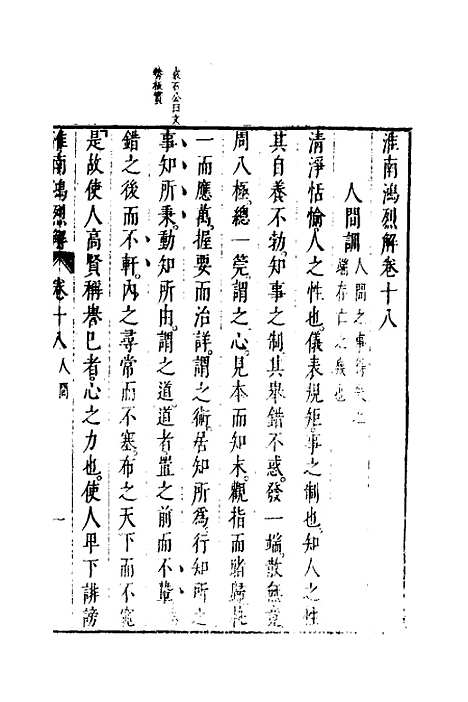 淮南鴻烈解卷十八
人間訓 人間之事得失之
端存亡之幾也
清淨恬愉人之性也儀表規矩事之制也知人之性
其自養不勃知事之制其舉錯不惑發一端散無竟
周八極總一筦謂之心見本而知末觀指而睹歸執
一而應萬握要而治詳謂之術居知所為行知所之
事知所秉動知所由謂之道道者置之前而不𨎌
錯之後而不軒內之尋常而不塞布之天下而不窕
是故使人高賢稱譽己者心之力也使人卑下誹謗
淮南鴻烈解 卷十八 人間 一
袁石公曰文
勢極質